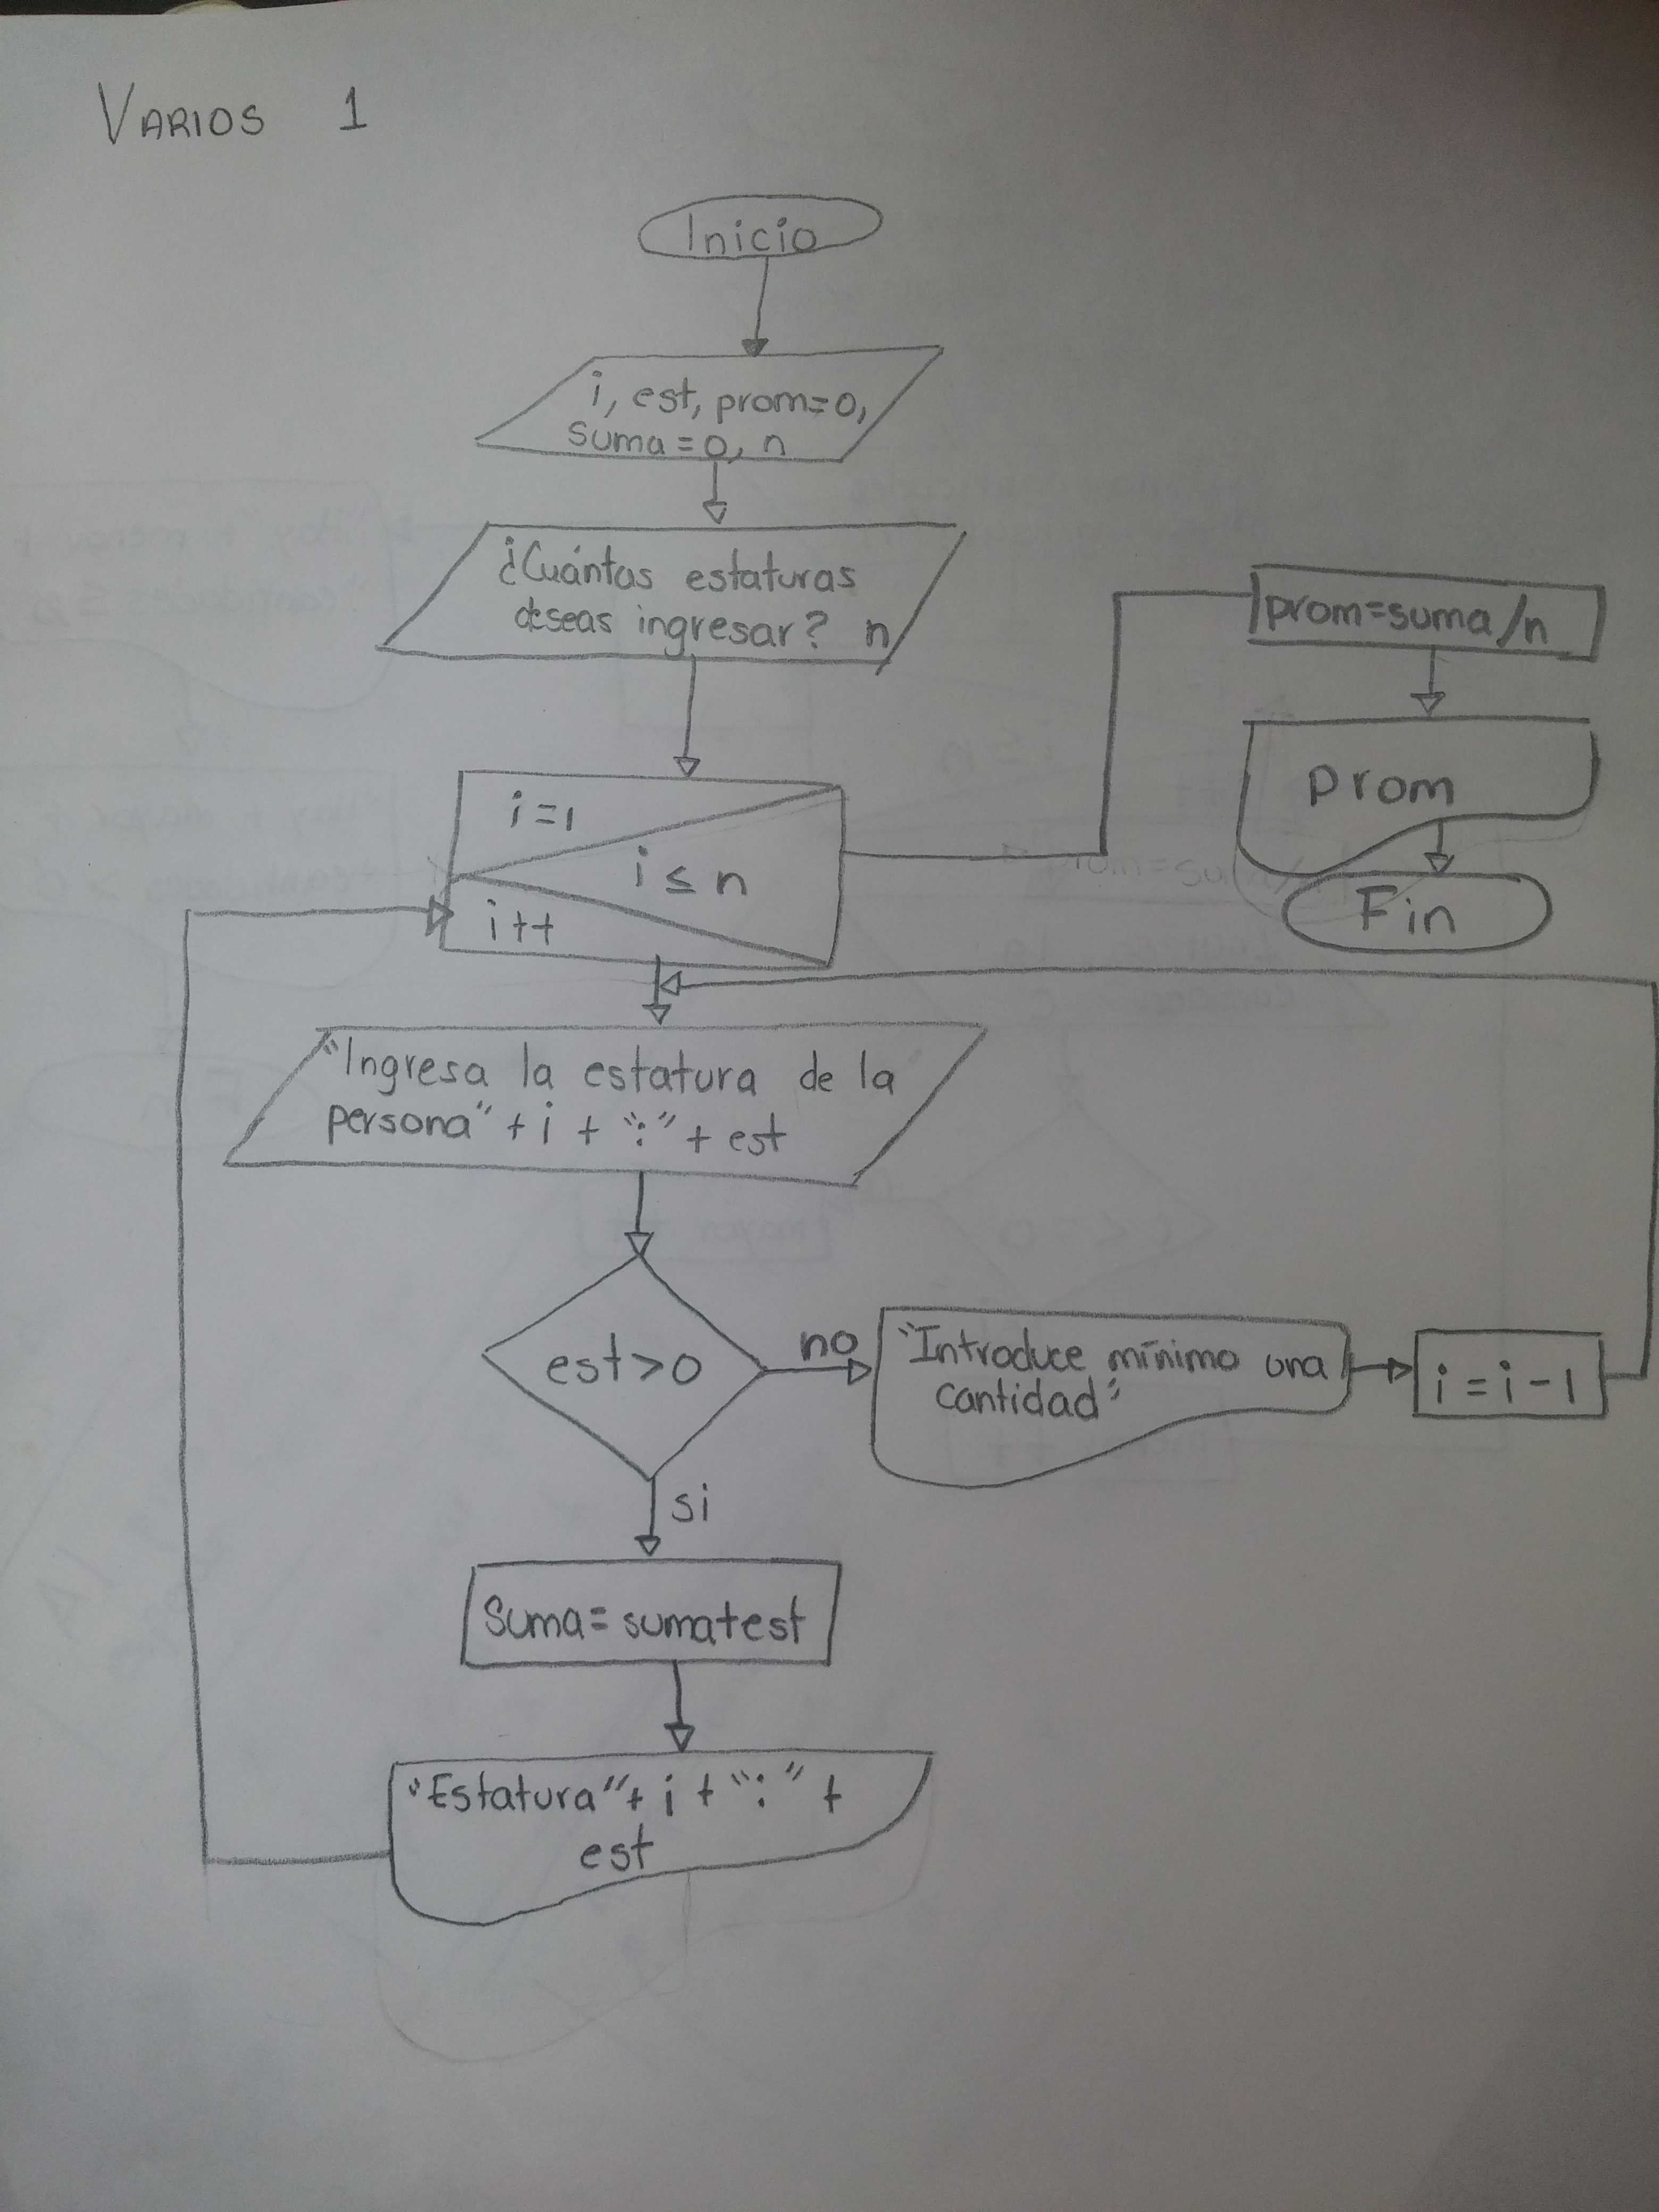 VARIOS 1
Inicio
i, est, prom=0,
suma=0, n
¿Cuántas estaturas
deseas ingresar? n
i=1
i ≤ n
i++
"Ingresa la estatura de la
persona" + i + ":" + est
est>0
no
"Introduce mínimo una
cantidad"
i = i - 1
si
Suma=suma+est
"Estatura"+ i + ":" +
est
prom=suma/n
prom
Fin